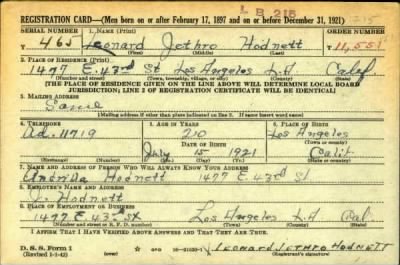 L B 215
215
REGISTRATION CARD—(Men born on or after February 17, 1897 and on or before December 31, 1921)
SERIAL NUMBER 1. NAME (Print) ORDER NUMBER
465 Leonard Jethro Hodnett 11,551
(First) (Middle) (Last)
2. PLACE OF RESIDENCE (Print)
1477 E. 43rd St Los Angeles L.A Calif
(Number and street) (Town, township, village, or city) (County) (State)
[THE PLACE OF RESIDENCE GIVEN ON THE LINE ABOVE WILL DETERMINE LOCAL BOARD
JURISDICTION; LINE 2 OF REGISTRATION CERTIFICATE WILL BE IDENTICAL]
3. MAILING ADDRESS
Same
[Mailing address if other than place indicated on line 2. If same insert word same]
4. TELEPHONE 5. AGE IN YEARS 6. PLACE OF BIRTH
Ad. 11719 20 Los Angeles
DATE OF BIRTH (Town or county)
July 15 1921 Calif.
(Mo.) (Day) (Yr.) (State or country)
7. NAME AND ADDRESS OF PERSON WHO WILL ALWAYS KNOW YOUR ADDRESS
Hodnett 1477 E. 43rd St
8. EMPLOYER'S NAME AND ADDRESS
J. Hodnett
9. PLACE OF EMPLOYMENT OR BUSINESS
1477 E. 43rd St Los Angeles L.A Cal.
(Number and street or R. F. D. number) (Town) (County) (State)
I AFFIRM THAT I HAVE VERIFIED ABOVE ANSWERS AND THAT THEY ARE TRUE.
D. S. S. Form 1 LEONARD JETHRO HODNETT
(Revised 1-1-42) (Registrant's signature)